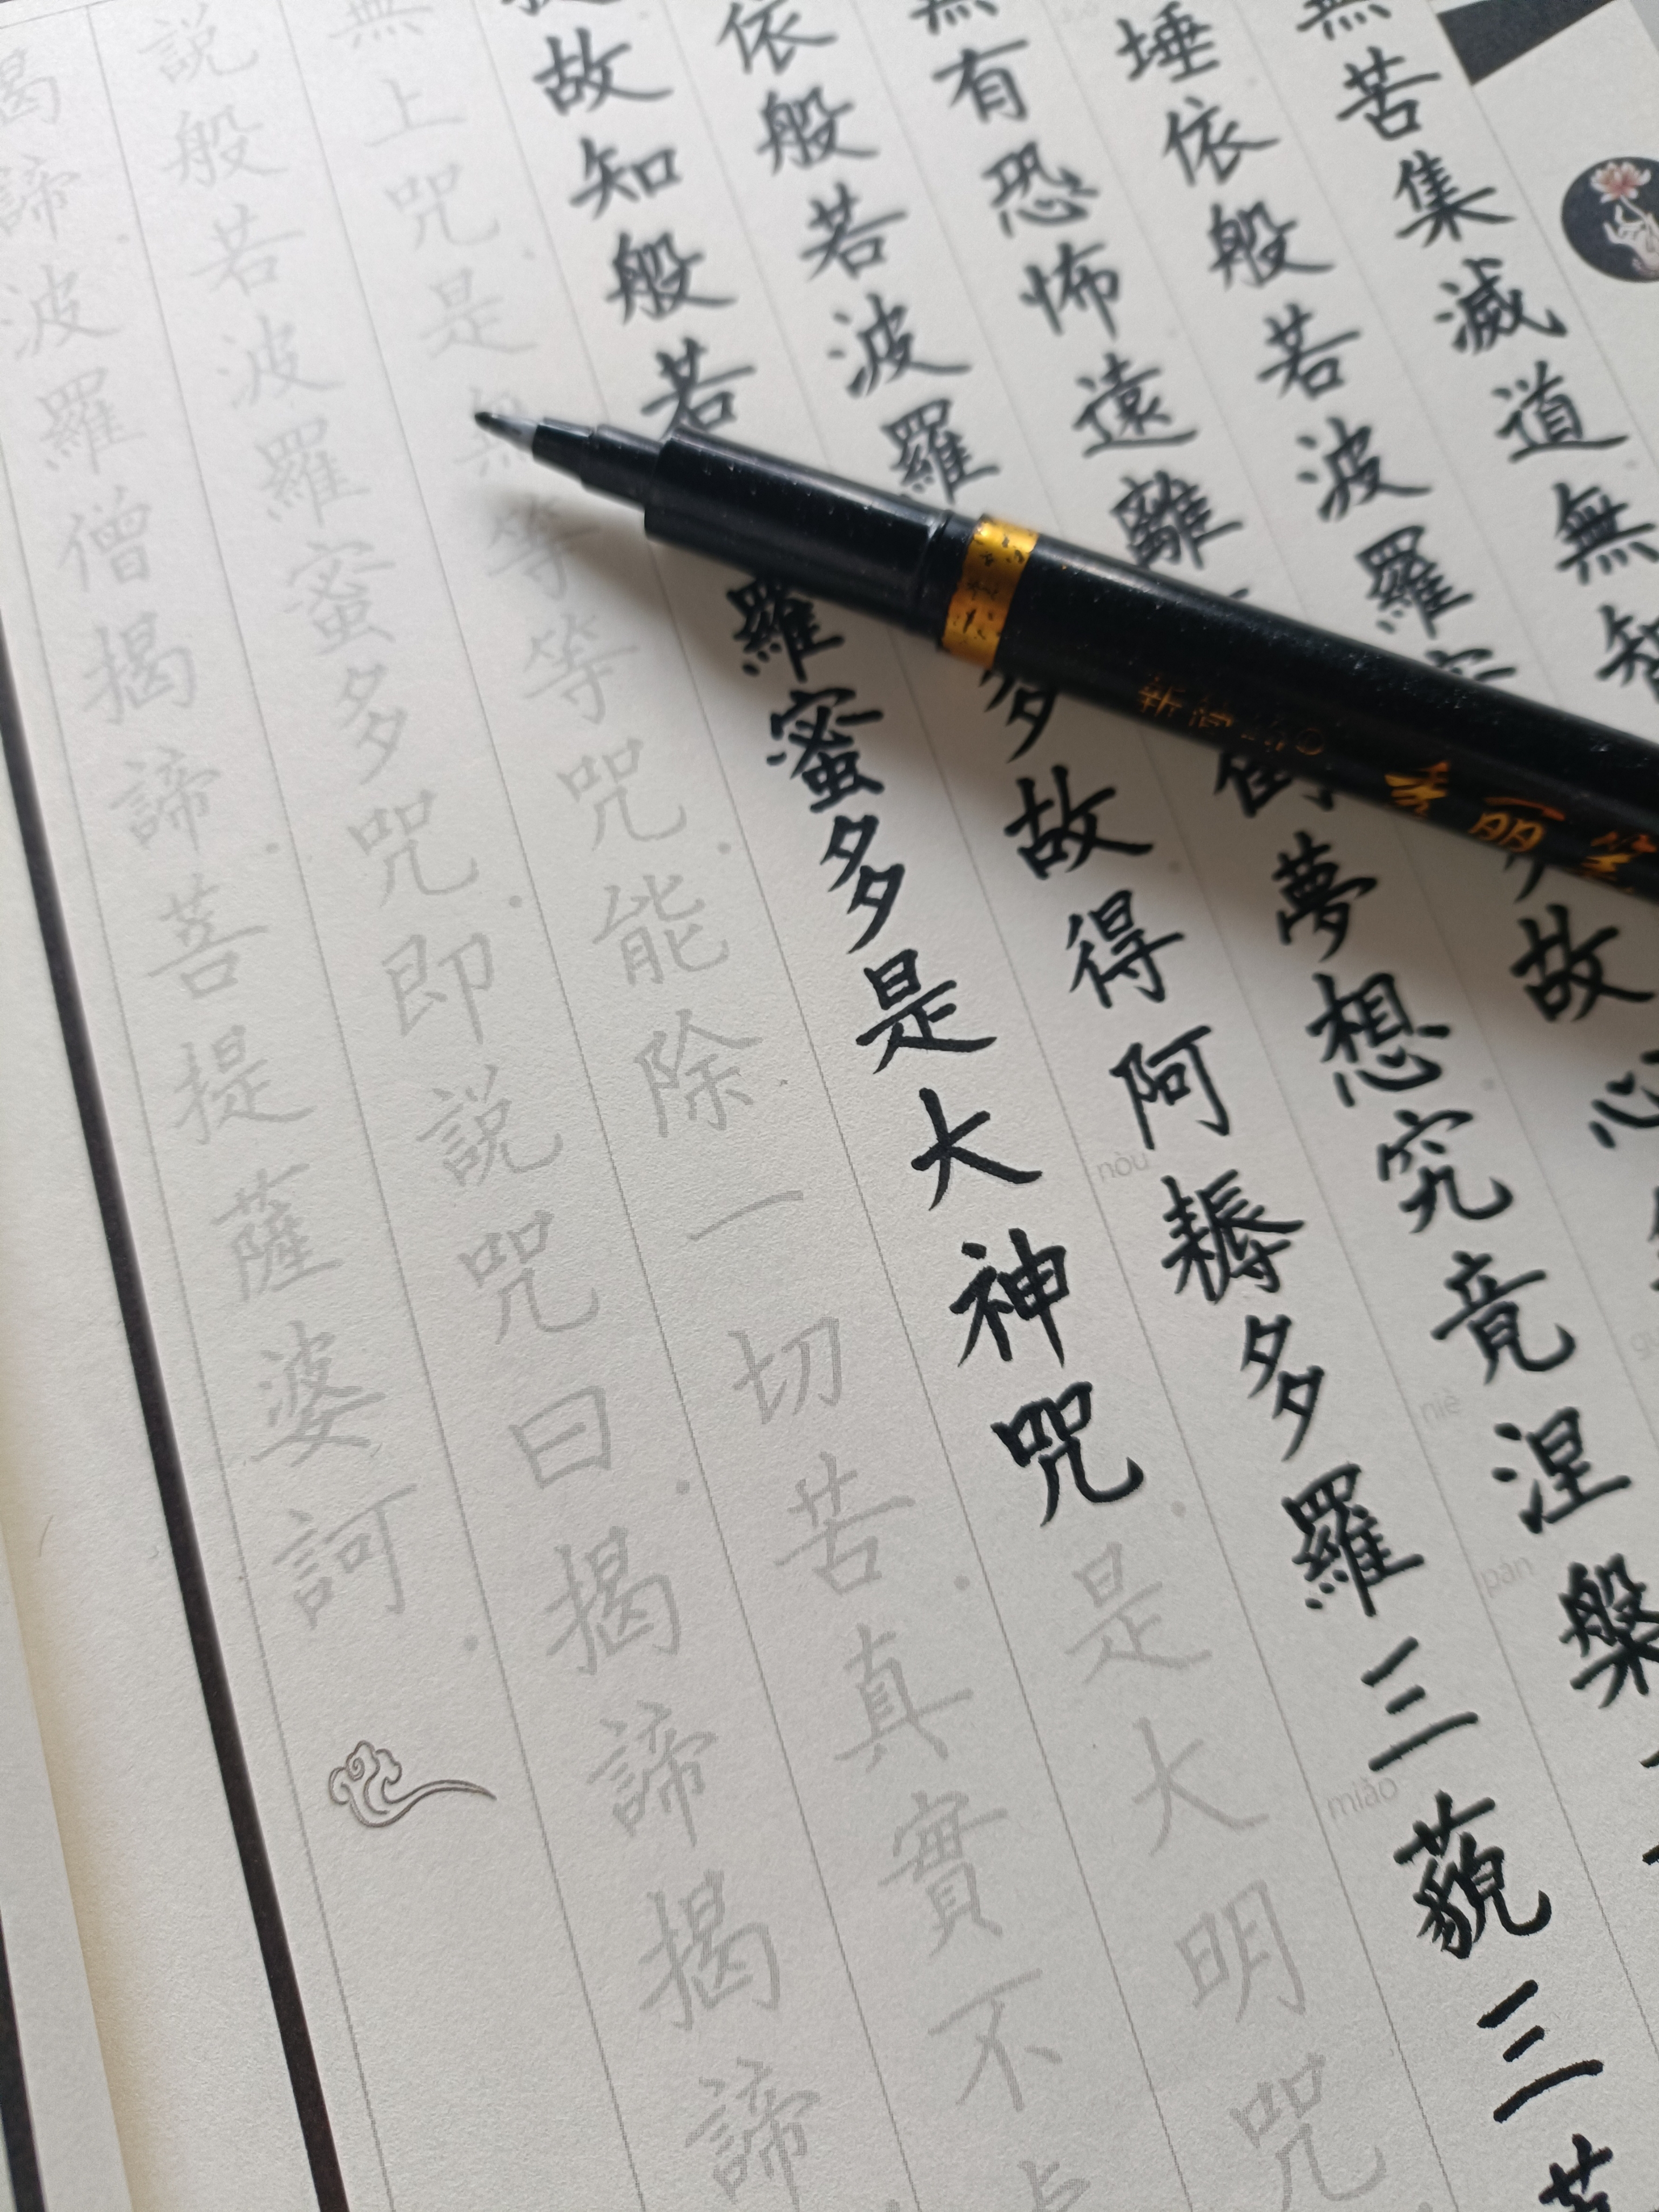 無苦集滅道無智
埵依般若波羅蜜多故心
無有恐怖遠離倒夢想究竟涅槃
niè
pán
依般若波羅多故得阿耨多羅三藐三菩
nòu
miǎo
故知般若羅蜜多是大神咒是大明咒
無上咒是無等等咒能除一切苦真實不虛
說般若波羅蜜多咒即說咒曰揭諦揭諦
揭諦波羅僧揭諦菩提薩婆訶
秀丽笔